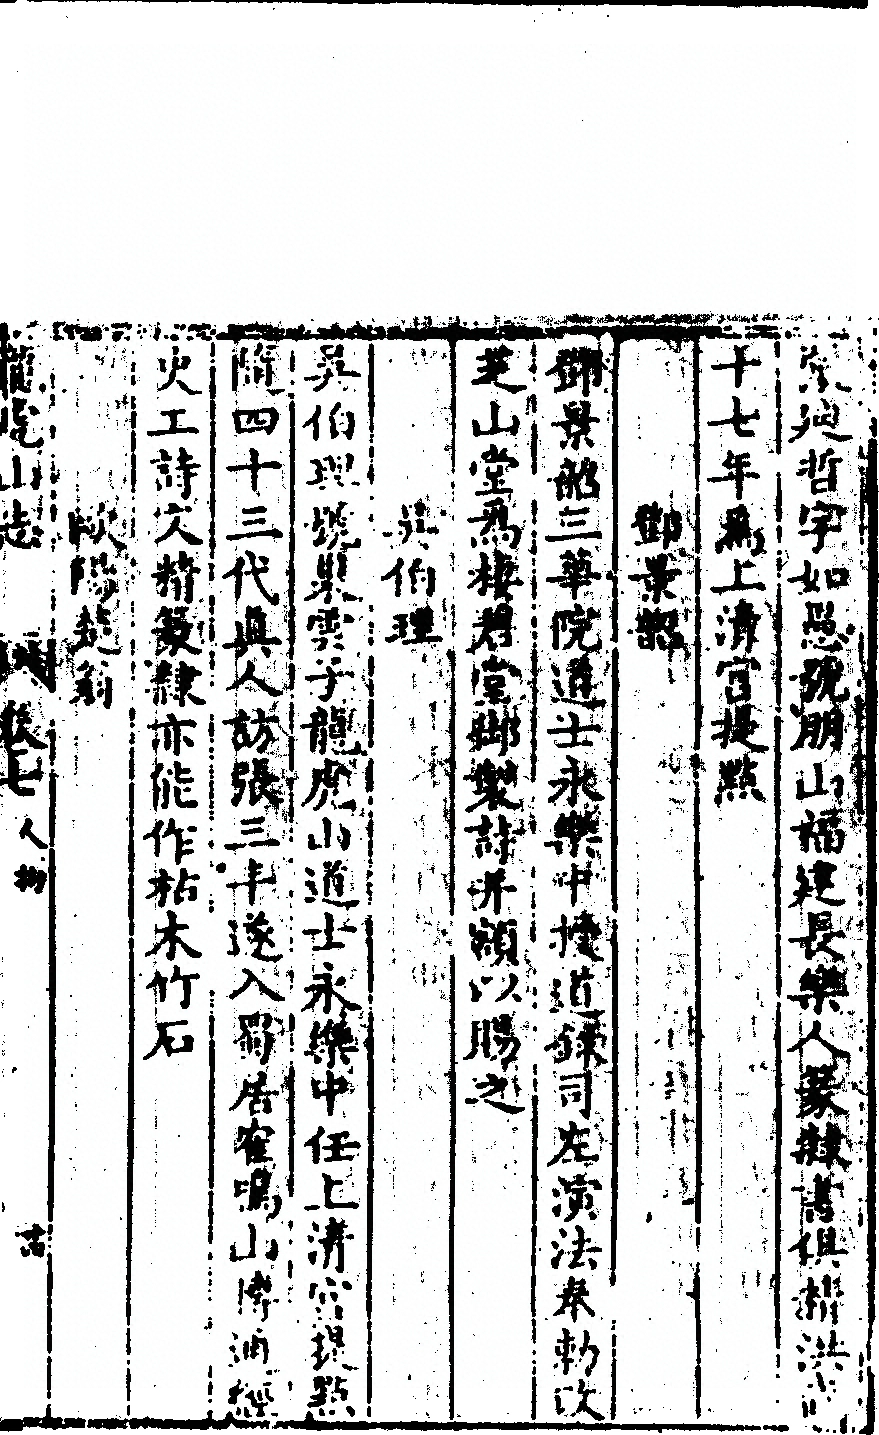 袁廸哲字如愚號朋山福建長樂人篆隸書俱精洪
十七年爲上清宮提點
鄧景韶
鄧景韶三華院道士永樂中擢道錄司左演法奉勅改
芝山堂爲棲碧堂御製詩并額以賜之
吳伯理
吳伯理號巢雲子龍虎山道士永樂中任上清宮提點
隨四十三代眞人訪張三丰遂入蜀居寉鳴山博洞經
史工詩文精篆隸亦能作枯木竹石
歐陽楚翁
龍虎山志 卷七 人物